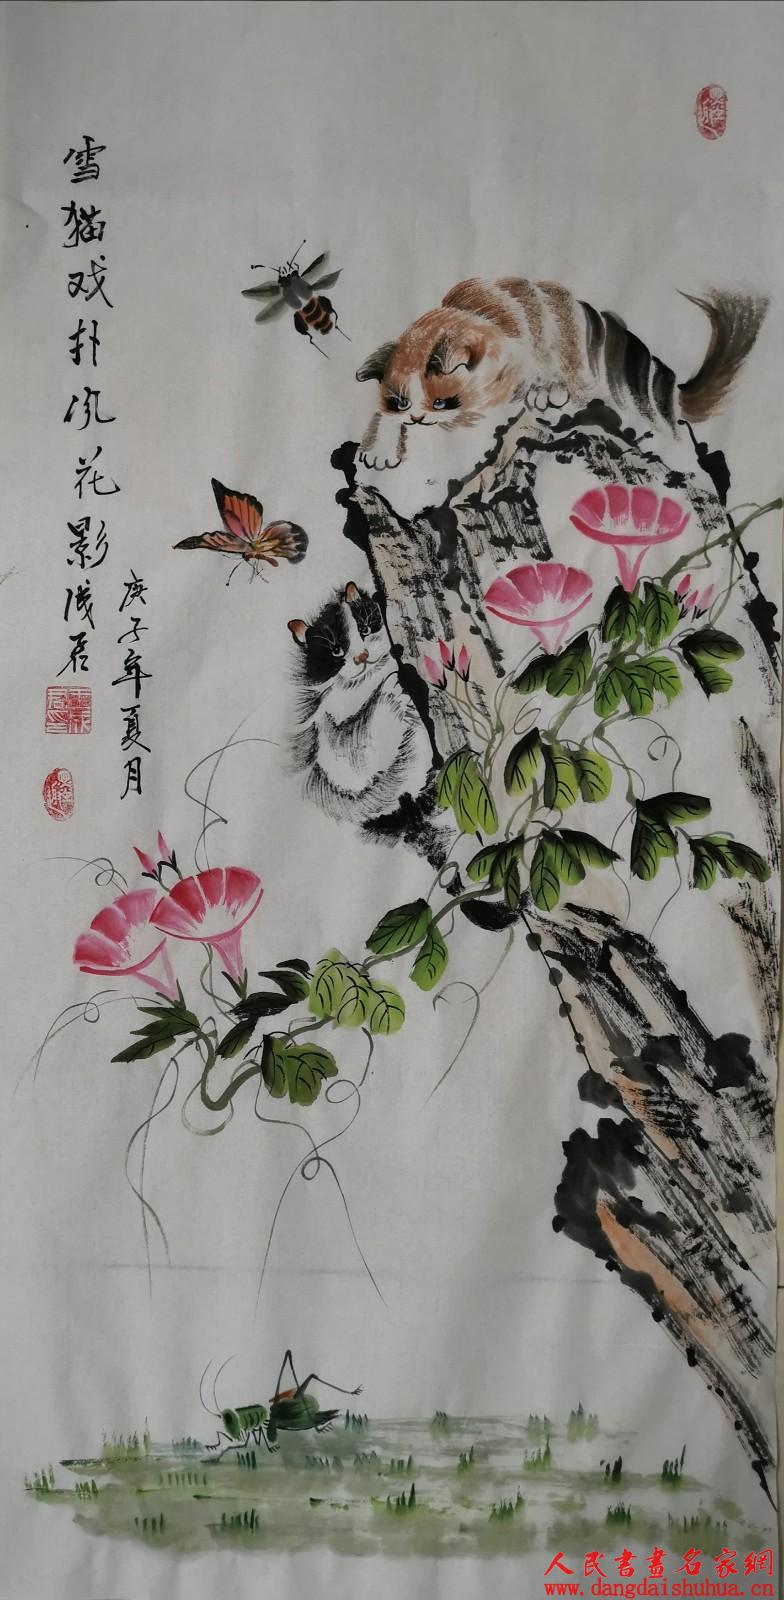 雪猫戏扑风花影
庚子年夏月
人民書畫名家網
www.dangdaishuhua.cn